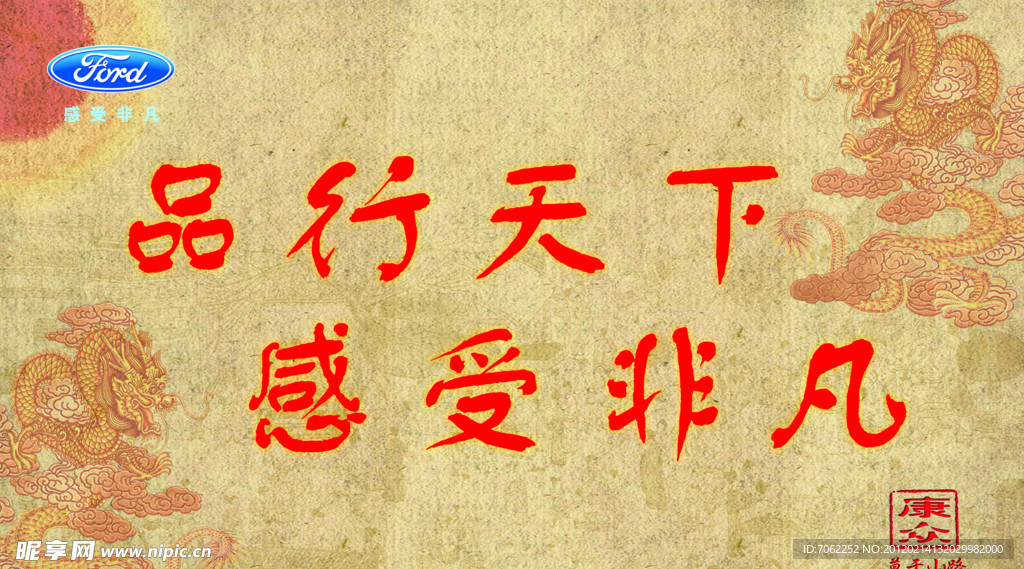 Ford
感受非凡
品行天下
感受非凡
康众
昵享网 www.nipic.cn
ID:7062252 NO:20120214132029982000